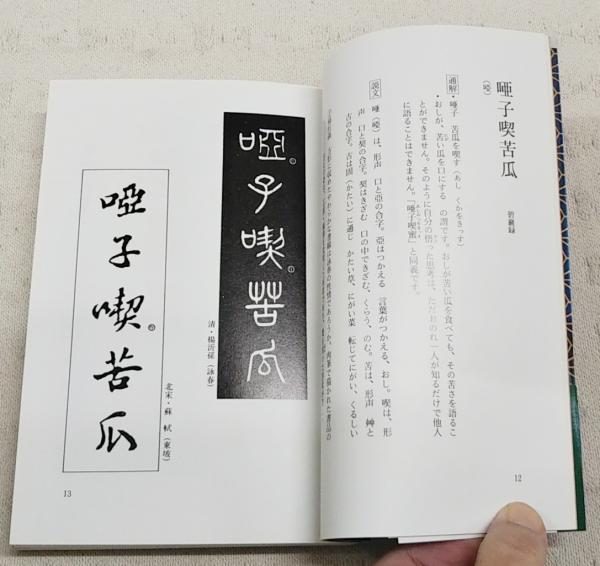 唖子喫苦瓜
(啞)
碧巌録
通解・唖子 苦瓜を喫す(あし くかをきっす)
・おしが、苦い瓜を口にする の謂です。おしが苦い瓜を食べても、その苦さを語るこ
とができません。そのように自分の悟った思考は、ただおのれ一人が知るだけで他人
に語ることはできません。「唖子喫蜜」と同義です。
説文 唖(啞)は、形声 口と亞の合字。亞はつかえる 言葉がつかえる、おし。喫は、形
声 口と契の合字。契はきざむ 口の中できざむ、くらう、のむ。苦は、形声 艸と
古の合字。古は固(かたい)に通じ かたい草、にがい菜 転じてにがい、くるしい
12
啞子喫苦瓜
清・楊沂孫(詠春)
啞子喫苦瓜
北宋・蘇 軾(東坡)
13